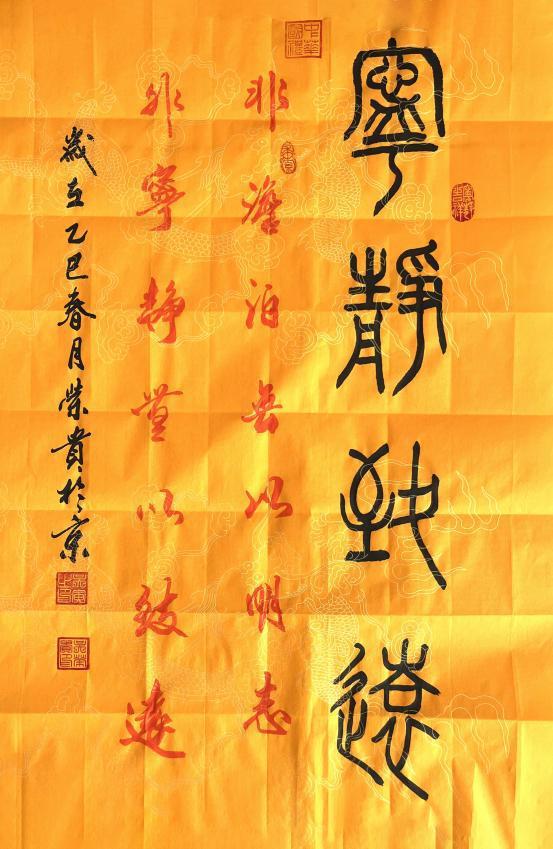 寧靜致遠
非澹泊無以明志
非寧靜無以致遠
歲在乙巳春月榮貴於京